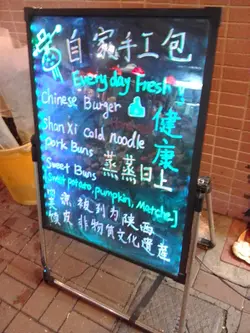 自家手工包
Everyday Fresh!
Chinese Burger
健康
Shan Xi Cold noodle
Pork Buns
蒸蒸日上
Sweet Buns
[Sweet potato, pumpkin, Matcha]
为陕西
非物質文化遺產